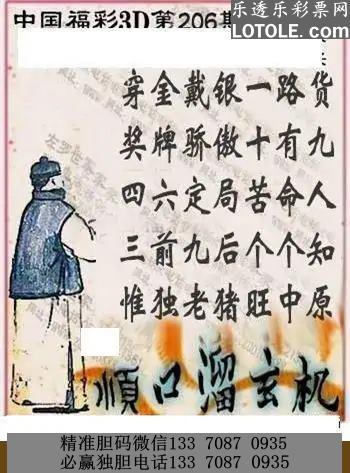 乐透乐彩票网
LOTOLE.COM
中国福彩3D第206期
穿金戴银一路货
奖牌骄傲十有九
四六定局苦命人
三前九后个个知
惟独老猪旺中原
顺口溜玄机
精准胆码微信133 7087 0935
必赢独胆电话133 7087 0935